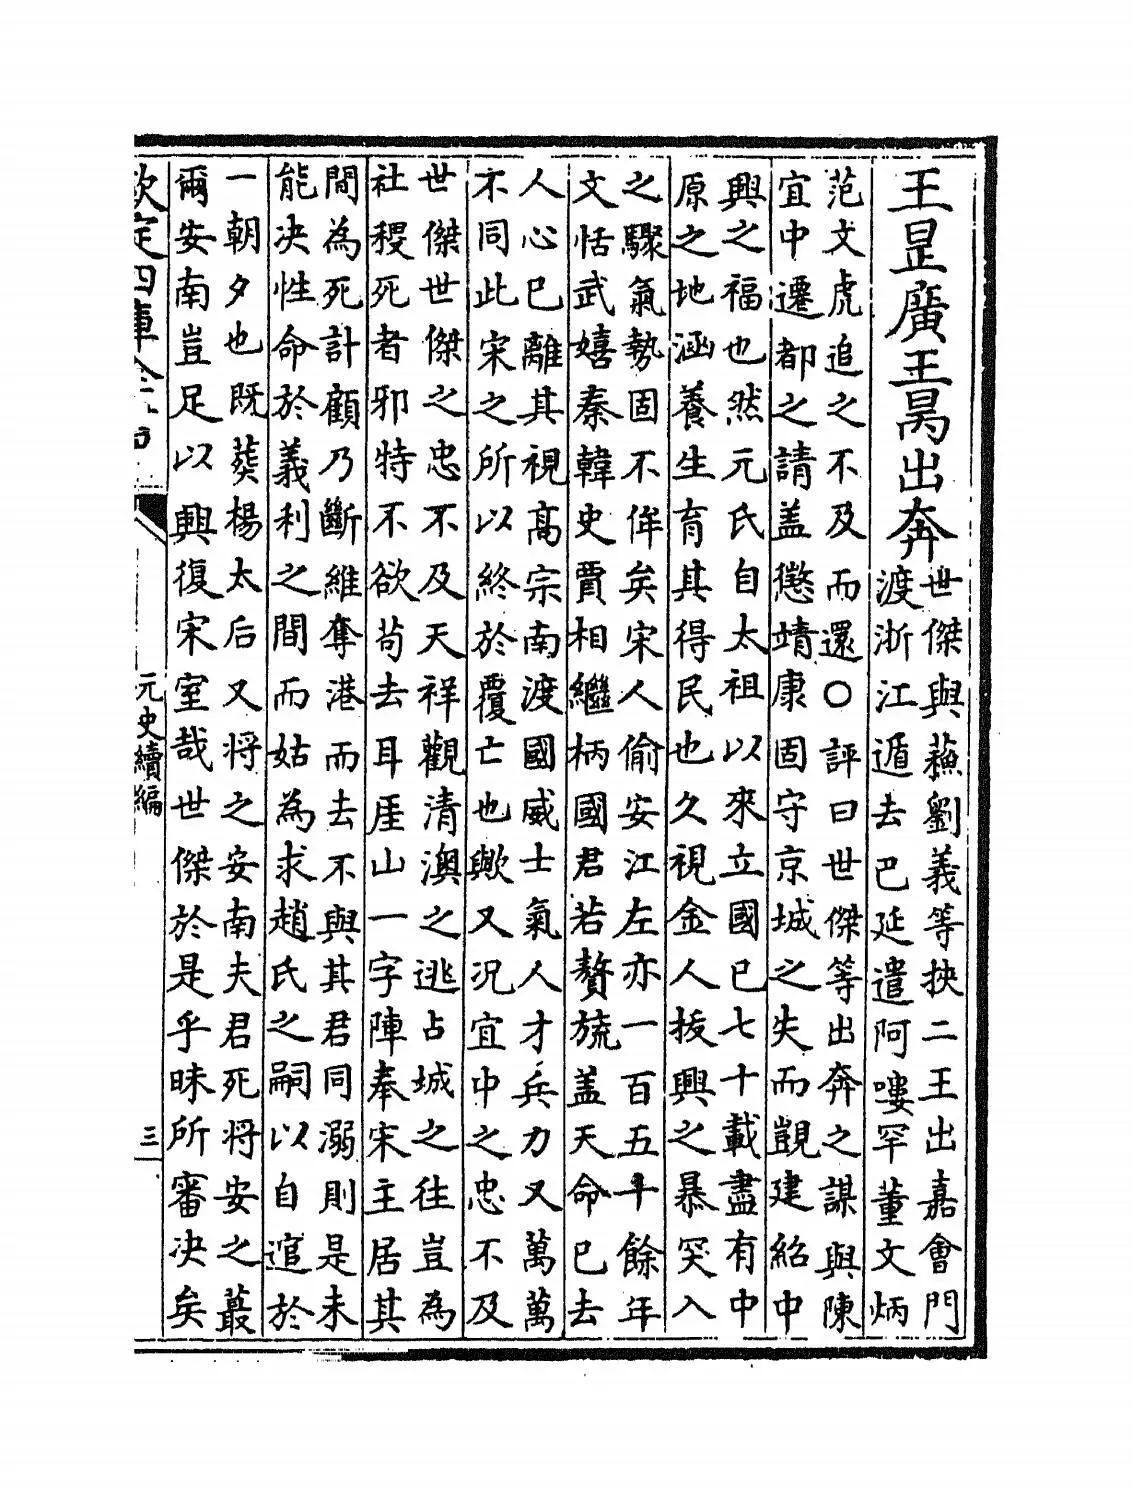 王昰廣王昺出奔
世傑與蘇劉義等挾二王出嘉會門
渡浙江遁去巴延遣阿嘍罕董文炳
范文虎追之不及而還○評曰世傑等出奔之謀與陳
宜中遷都之請盖懲靖康固守京城之失而覬建紹中
興之福也然元氏自太祖以來立國已七十載盡有中
原之地涵養生育其得民也久視金人拔興之暴突入
之驟氣勢固不侔矣宋人偷安江左亦一百五十餘年
文恬武嬉秦韓史賈相繼柄國君若贅旒盖天命已去
人心已離其視高宗南渡國威士氣人才兵力又萬萬
不同此宋之所以終於覆亡也歟又况宜中之忠不及
世傑世傑之忠不及天祥觀清澳之逃占城之往豈為
社稷死者邪特不欲苟去耳厓山一字陣奉宋主居其
間為死計顧乃斷維奪港而去不與其君同溺則是未
能决性命於義利之間而姑為求趙氏之嗣以自逭於
一朝夕也既葬楊太后又将之安南夫君死将安之蕞
爾安南豈足以興復宋室哉世傑於是乎昧所審决矣
欽定四庫全書
元史續編
三